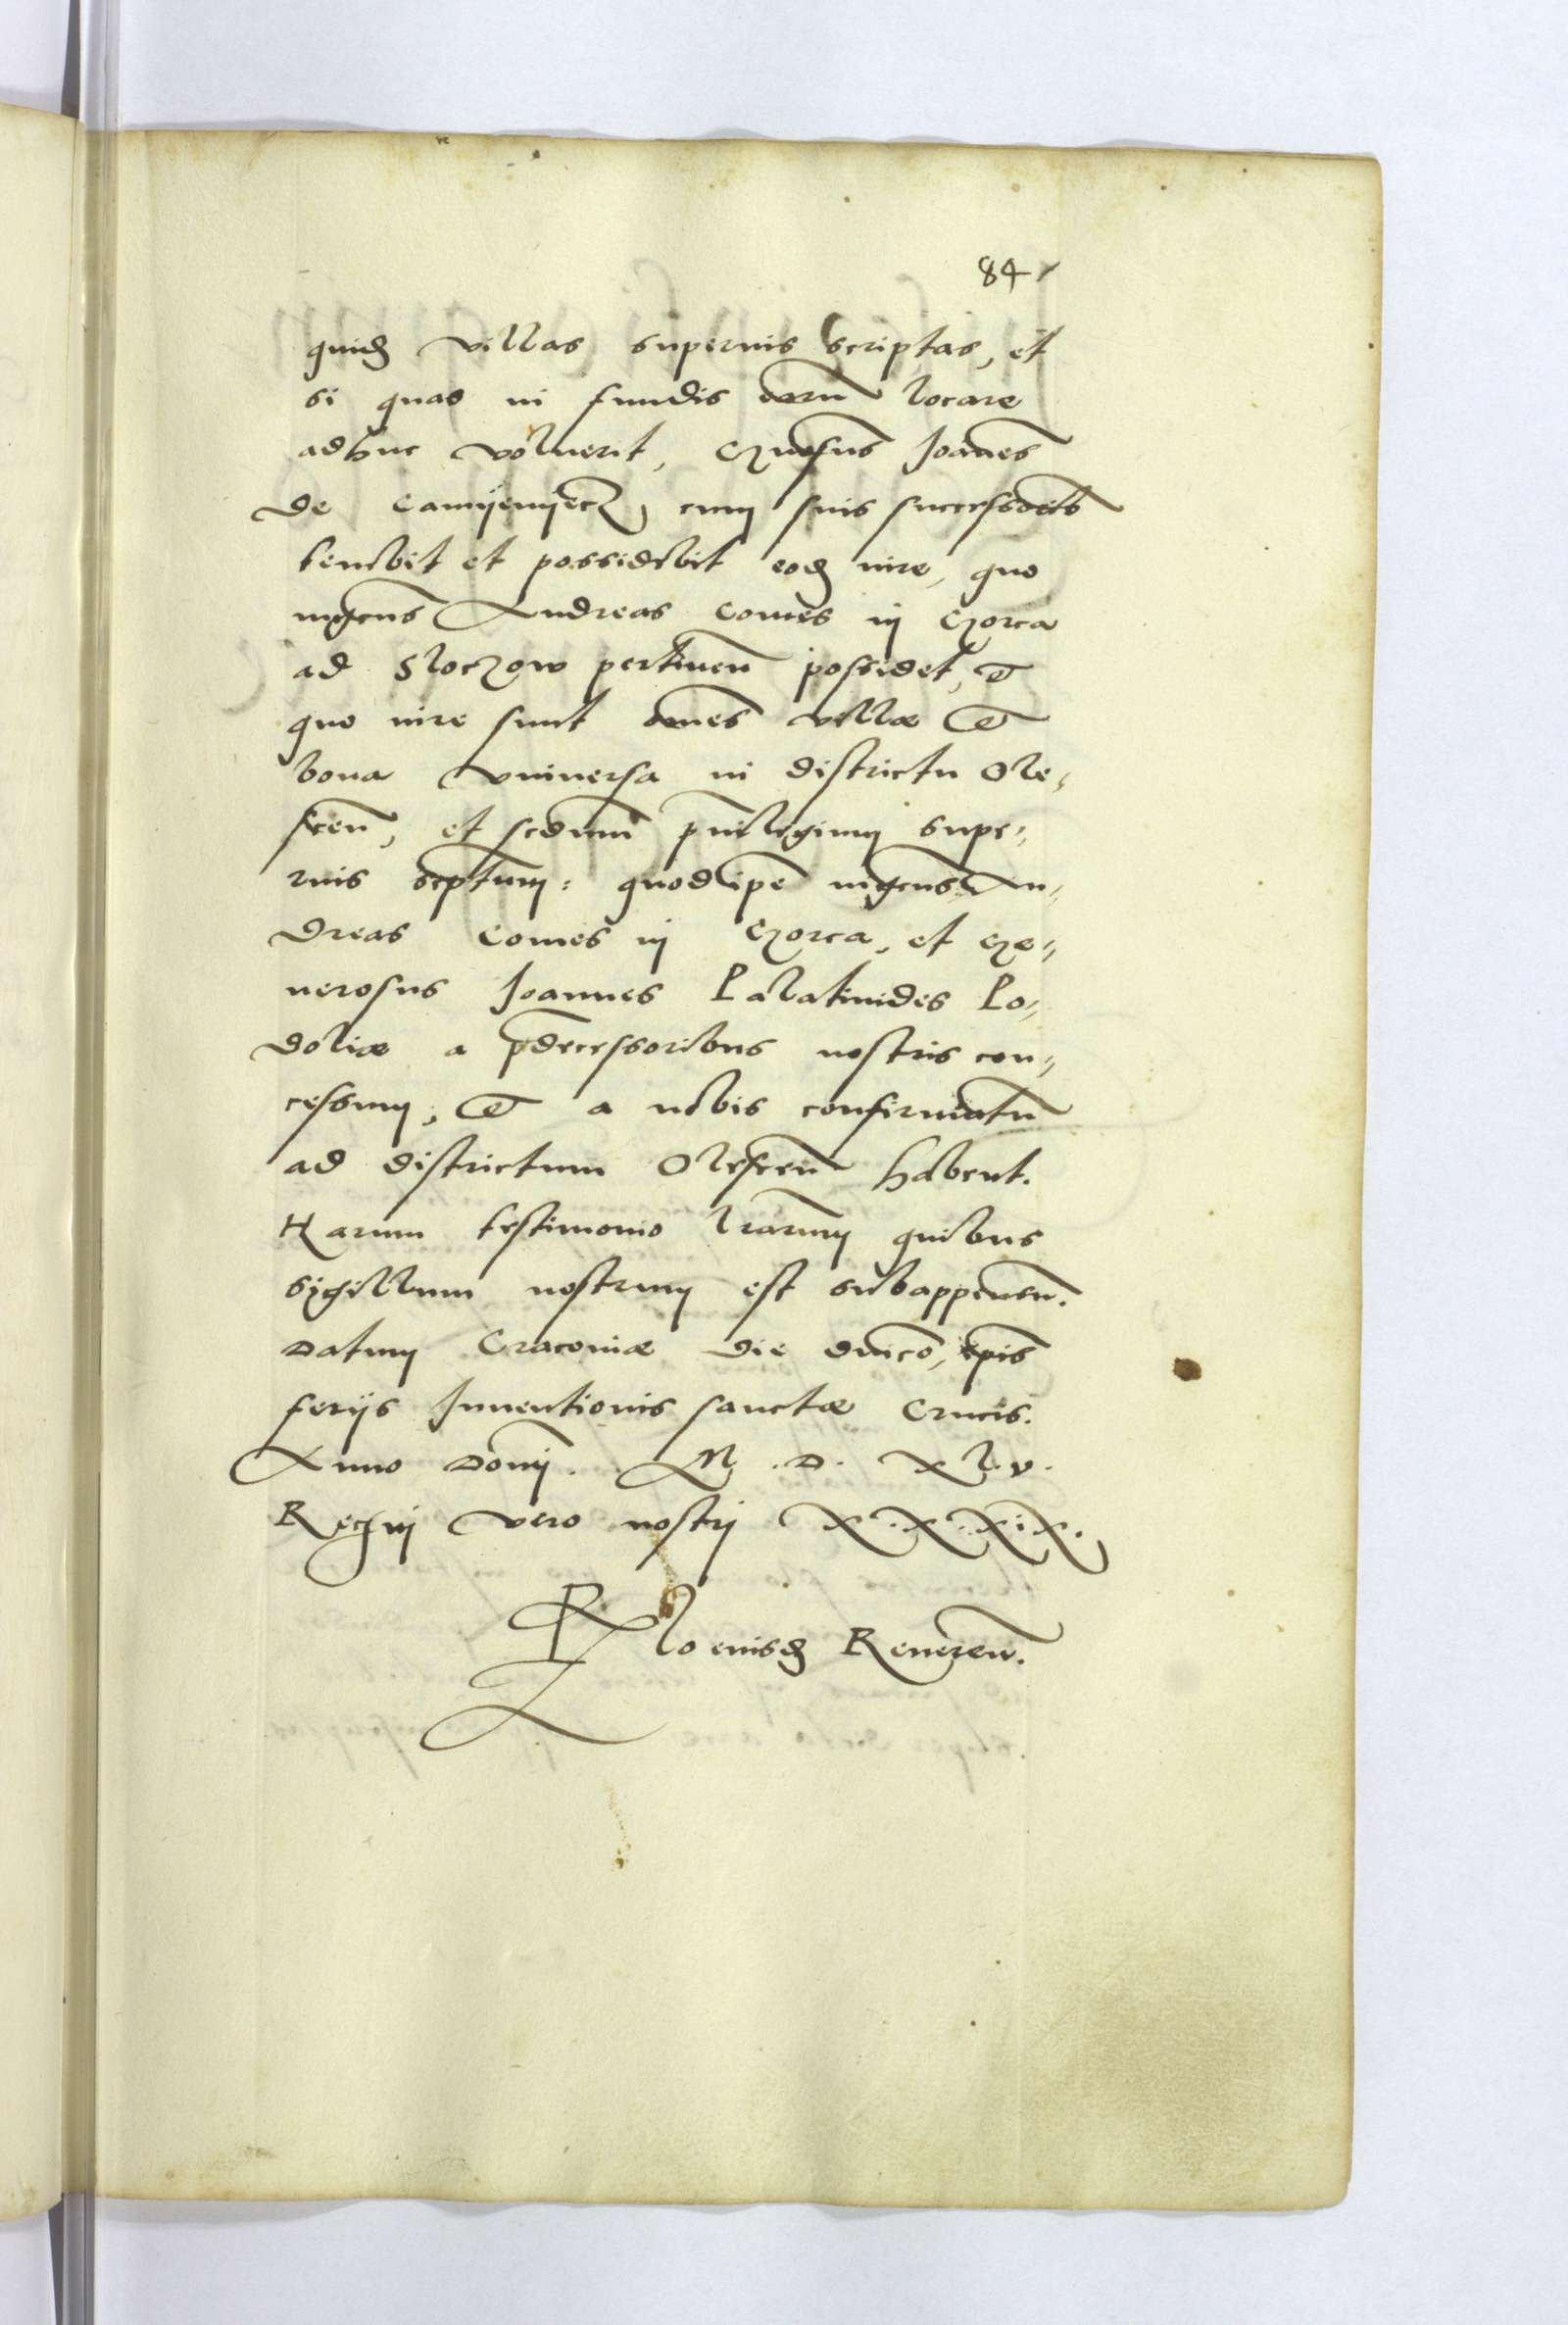 84
quidē villas superius scriptas, et
si quas in fundis earū locare
adhuc voluerit, Gnosus Joanes
de Camÿenyecz, cum suis successorib
tenebit et possidebit eodē iure, quo
mgcus Andreas Comes in Gorca
ad Sloczow pertinen possidet, et
quo iure sunt omnes villæ et
bona vniuersa in districtu Ole,,
scen, et scdum priuilegium supe,,
rius scptum: quod ipse mgcus An,,
dreas Comes in Gorca, et Ge,,
nerosus Joannes Palatinides Po,,
doliæ a pdecessoribus nostris con,,
cessum, et a nobis confirmatū
ad districtum Olescen habent.
Harum testimonio lrarum quibus
Sigillum nostrum est subappensu.
Datum Cracoviæ die dnico, ipis
ferijs Inuentionis sanctæ Crucis.
Anno Domj. M. D. XLv.
Regnj vero nostrj X.X.X.i.X.
Rlo eiusdē Reueren.